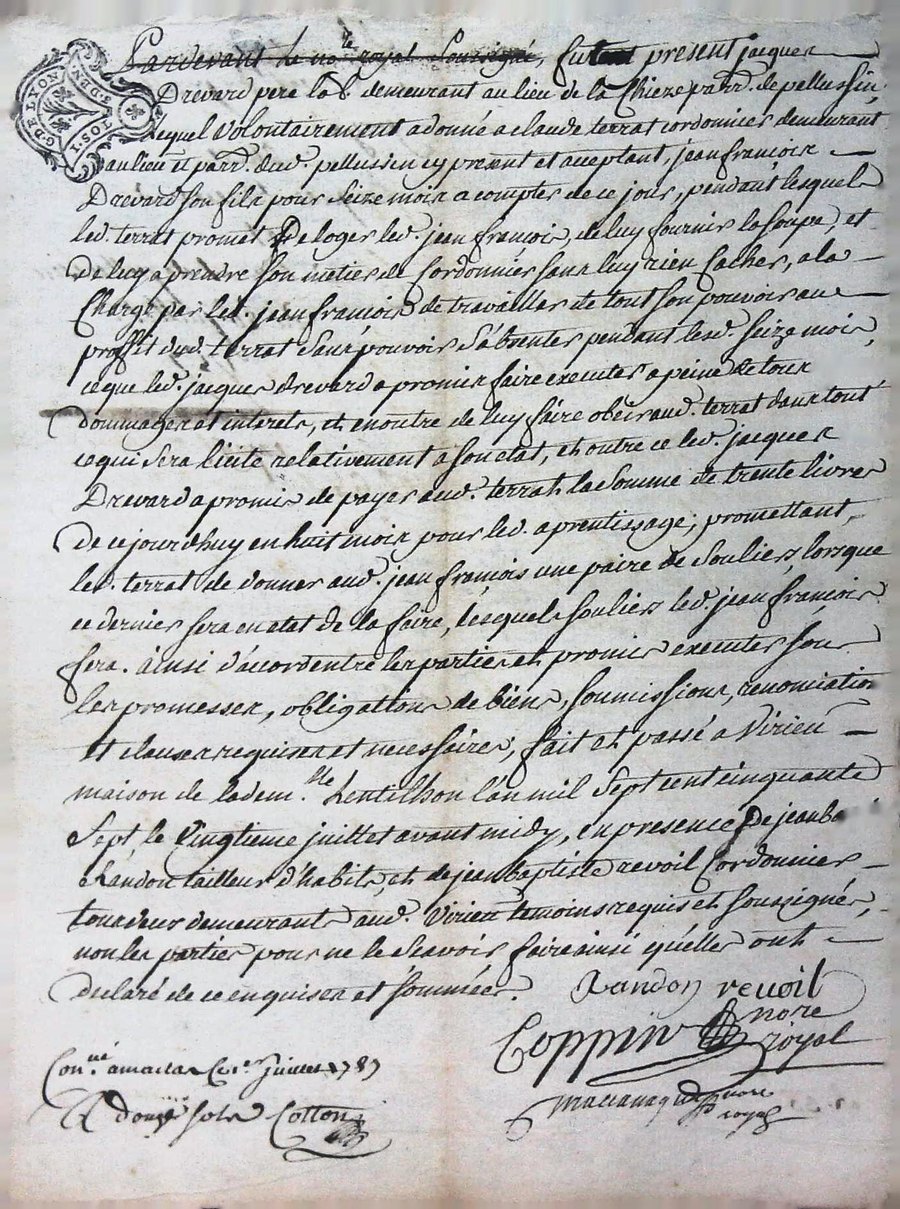 G. DE LYON
2. DEN
TOS. I
Pardevant le no.re royal soussigné, fut present jacques
Drevard pere lab.r demeurant au lieu de la Chieze parr. de pellussin
lequel Volontairement a donné a claude terrat cordonnier demeurant
au lieu et parr. dud. pellusien cy present et acceptant, jean francois
Drevard son fils pour seize mois a compter de ce jour, pendant lesquels
led. terrat promet de loger led. jean francois, de luy fournir la soupe, et
de luy aprendre son metier de Cordonnier sans luy rien Cacher, a la
Charge par led. jean francois de travailler de tout son pouvoir au
proffit dud. terrat sans pouvoir s'absenter pendant lesd. seize mois,
ce que led. jacques drevard a promis faire executer a peine de tous
dommages et interets, et en outre de luy faire obeir aud. terrat dans tout
ce qui sera licite relativement a son etat, et outre ce led. jacques
Drevard a promis de payer aud. terrat la somme de trente livres
de ce jourd'huy en huit mois pour led. aprentissage; promettant
led. terrat de donner aud. jean françois une paire de souliers, lorsque
ce dernier sera en etat de la faire, lesquels souliers led. jean françois
fera. ainsi d'accord entre les parties et promis executer sous
les promesses, obligations de biens, soumissions, renonciations
et clauses requises et necessaires; fait et passé a Virieu
maison de la dem.lle Lentilhon l'an mil sept cent cinquante
sept, le vingtieme juillet avant midy, en presence de jean ba
chandon tailleur d'habits, et de jean baptiste revoil Cordonnier
tous deux demeurant aud. Virieu temoins requis et soussignés,
non les parties pour ne le sçavoir faire ainsi qu'elles ont
declaré de ce enquises et sommées.
Chandon revoil
Coppin nore
royal
Con.ulé a maclas Ce 1.er juillet 1787
R douze sols Cotton
nore
royal